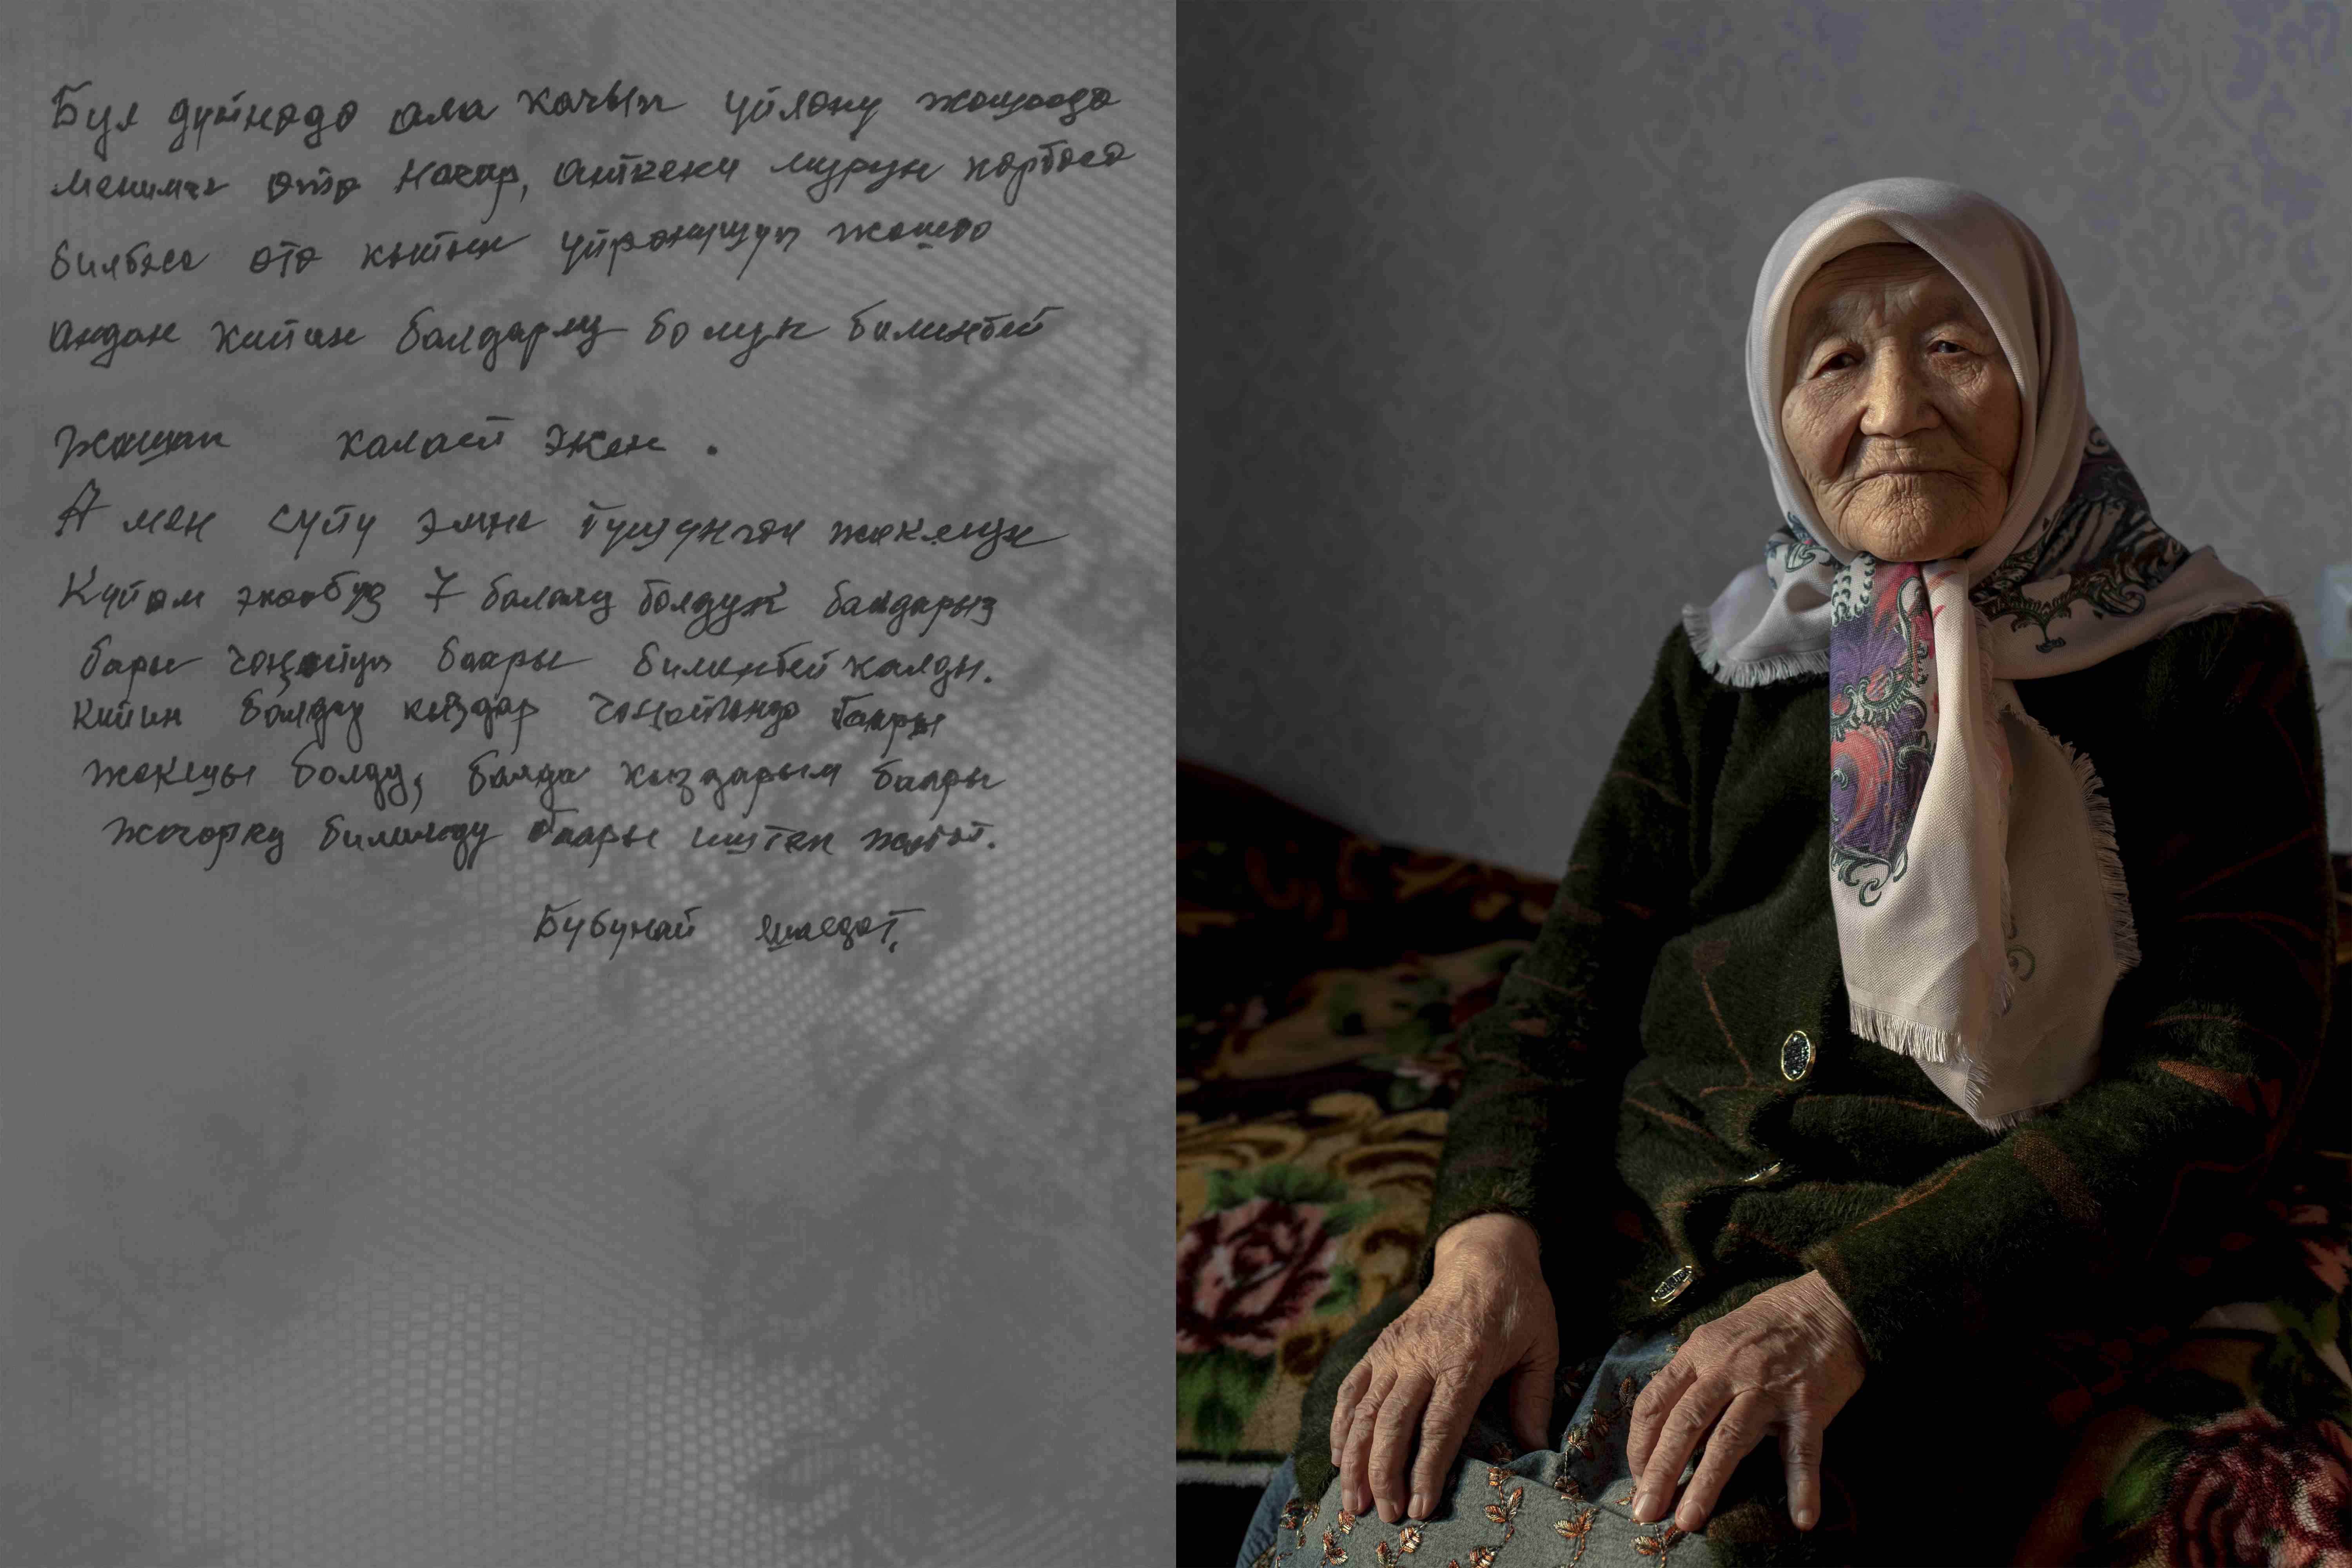 Бул дүйнөдө ала качып үйлөнү жошоодо
менимче өтө начар, анткени мурун көрбөсө
билбесе өтө кыйын үйрөнүшүп жашоо
андан кийин балдарлу болуп билинбей
жашап калат экен.
А мен сүйү эмне түшүнгөн жокмун
Күйөм экообуз 7 балалу болдук балдарыз
бары чоңоюп баары билинбей калды.
Кийин балдар кыздар чоңойгондо баары
жакшы болду, балда кыздарым баары
жогорку билимдүү баары иштеп жатат.
Бубунай